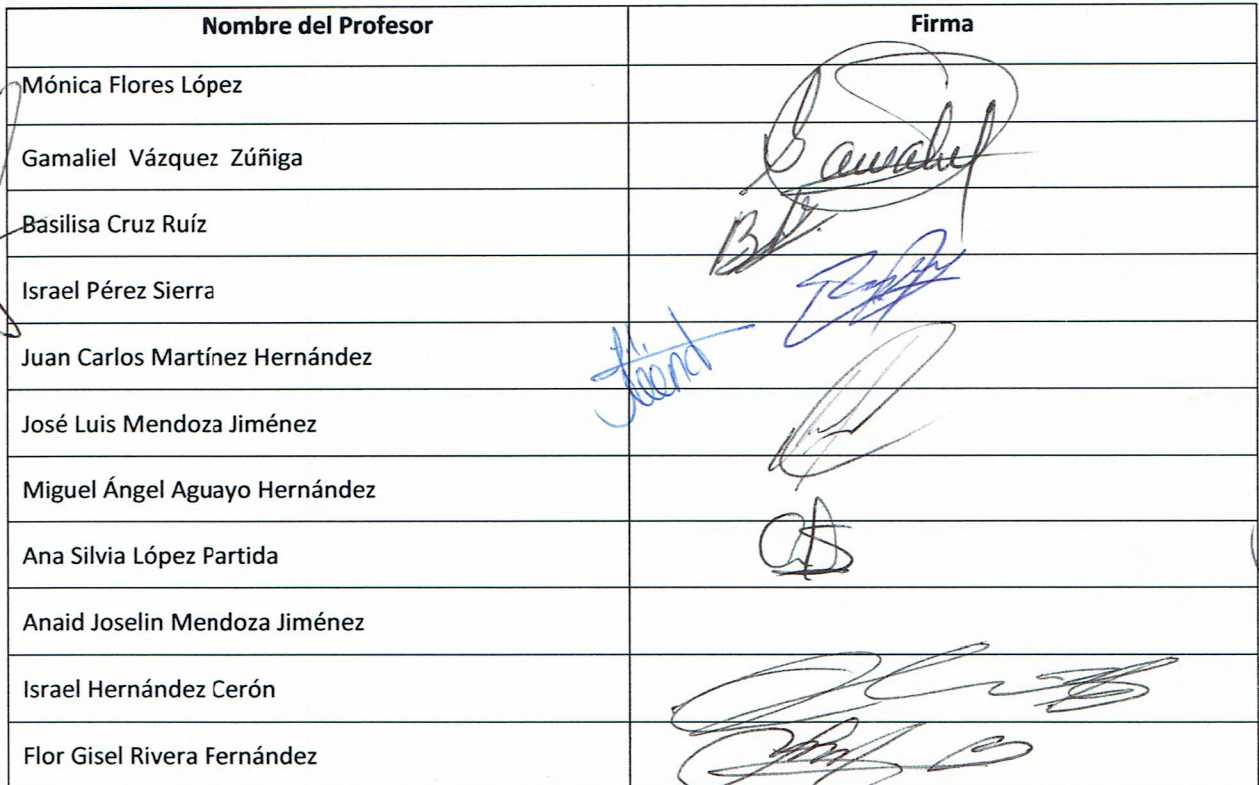 Nombre del Profesor Firma
Mónica Flores López
Gamaliel Vázquez Zúñiga Gamaliel
Basilisa Cruz Ruíz
Israel Pérez Sierra
Juan Carlos Martínez Hernández
José Luis Mendoza Jiménez
Miguel Ángel Aguayo Hernández
Ana Silvia López Partida
Anaid Joselin Mendoza Jiménez
Israel Hernández Cerón
Flor Gisel Rivera Fernández